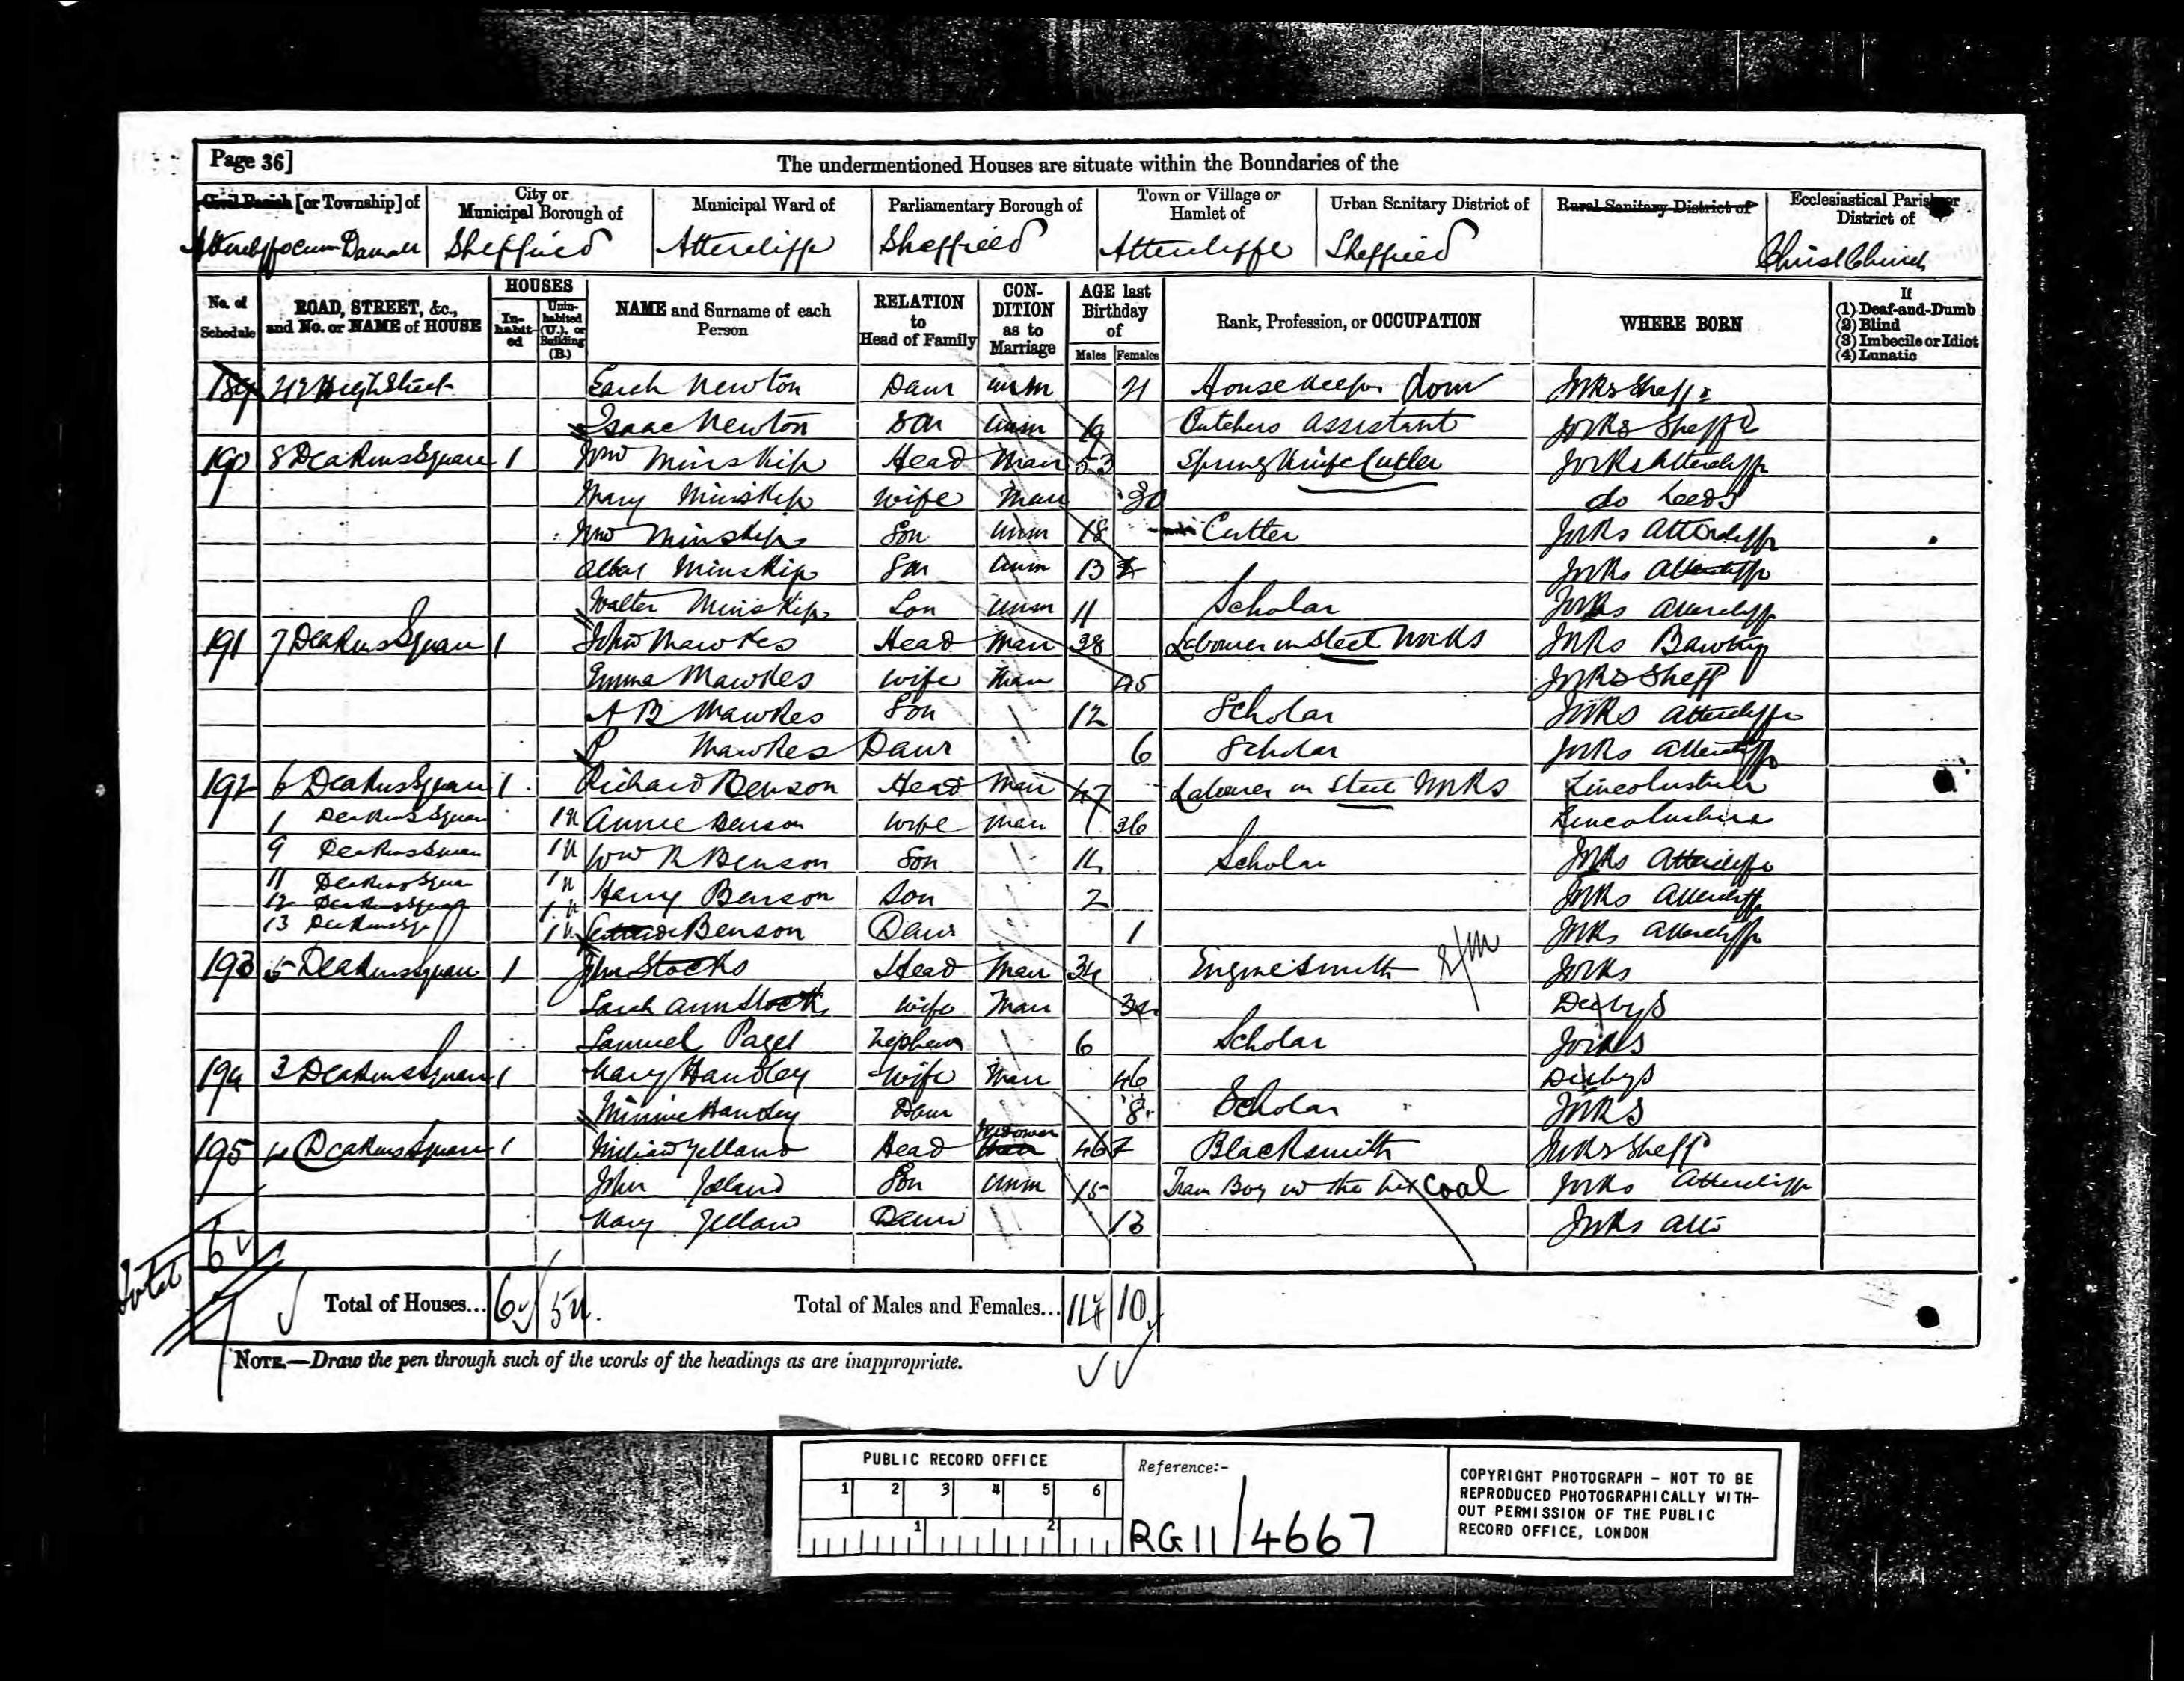 Page 36]
The undermentioned Houses are situate within the Boundaries of the
Civil Parish [or Township] of
City or Municipal Borough of
Municipal Ward of
Parliamentary Borough of
Town or Village or Hamlet of
Urban Sanitary District of
Rural Sanitary District of
Ecclesiastical Parish or District of
Sheffield Attercliffe Sheffield Attercliffe Sheffield Christ Church
No. of Schedule
ROAD, STREET, &c., and No. or NAME of HOUSE
HOUSES
In-habit-ed
Unin-habited (U.), or Building (B.)
NAME and Surname of each Person
RELATION to Head of Family
CON-DITION as to Marriage
AGE last Birthday of
Males Females
Rank, Profession, or OCCUPATION
WHERE BORN
If
(1) Deaf-and-Dumb
(2) Blind
(3) Imbecile or Idiot
(4) Lunatic
189 High Street Sarah Newton Daur unm 21 Housekeeper Dom Yorks Sheffd
Isaac Newton Son unm 19 Butchers assistant Yorks Sheffd
190 8 Deakins Square 1 Wm Minskip Head Mar 53 Spring Knife Cutler Yorks Attercliffe
Mary Minskip Wife Mar do Leeds
Wm Minskip Son unm 18 Cutler Yorks Attercliffe
Minskip Son unm 13 Yorks Attercliffe
Walter Minskip Son unm 11 Scholar Yorks Attercliffe
191 7 Deakins Square 1 John Mawkes Head Mar 38 Labourer in Steel Works Yorks Bawtry
Emma Mawkes Wife Mar 45 Yorks Sheff
A B Mawkes Son 12 Scholar Yorks Attercliffe
Mawkes Daur 6 Scholar Yorks Attercliffe
192 6 Deakins Square 1 Richard Benson Head Mar 47 Labourer in Steel Works Lincolnshire
1 Deakins Square 1 U Annie Benson Wife Mar 36 Lincolnshire
9 Deakins Square 1 U Wm R Benson Son Scholar Yorks Attercliffe
11 Deakins Square 1 U Harry Benson Son 2 Yorks Attercliffe
12 Deakins Square 1 U
13 Deakins Sqr 1 U Benson Daur 1 Yorks Attercliffe
193 5 Deakins Square 1 John Stocks Head Mar 34 Engine Smith Yorks
Sarah Ann Stocks Wife Mar 34 Derbys
Samuel Paget Nephew 6 Scholar Yorks
194 3 Deakins Square 1 Mary Handley Wife Mar 46 Derbys
Minnie Handley Daur 8 Scholar Yorks
195 4 Deakins Square 1 William Yelland Head Widower 46 Blacksmith Yorks Sheff
John Yelland Son unm 15 Tram Boy in the Coal Yorks Attercliffe
Mary Yelland Daur 13 Yorks Atte
Total 6
Total of Houses... 6 5 U.
Total of Males and Females... 14 10
NOTE.—Draw the pen through such of the words of the headings as are inappropriate.
PUBLIC RECORD OFFICE
1 2 3 4 5 6
1 2
Reference:-
RG 11 / 4667
COPYRIGHT PHOTOGRAPH - NOT TO BE
REPRODUCED PHOTOGRAPHICALLY WITH-
OUT PERMISSION OF THE PUBLIC
RECORD OFFICE, LONDON